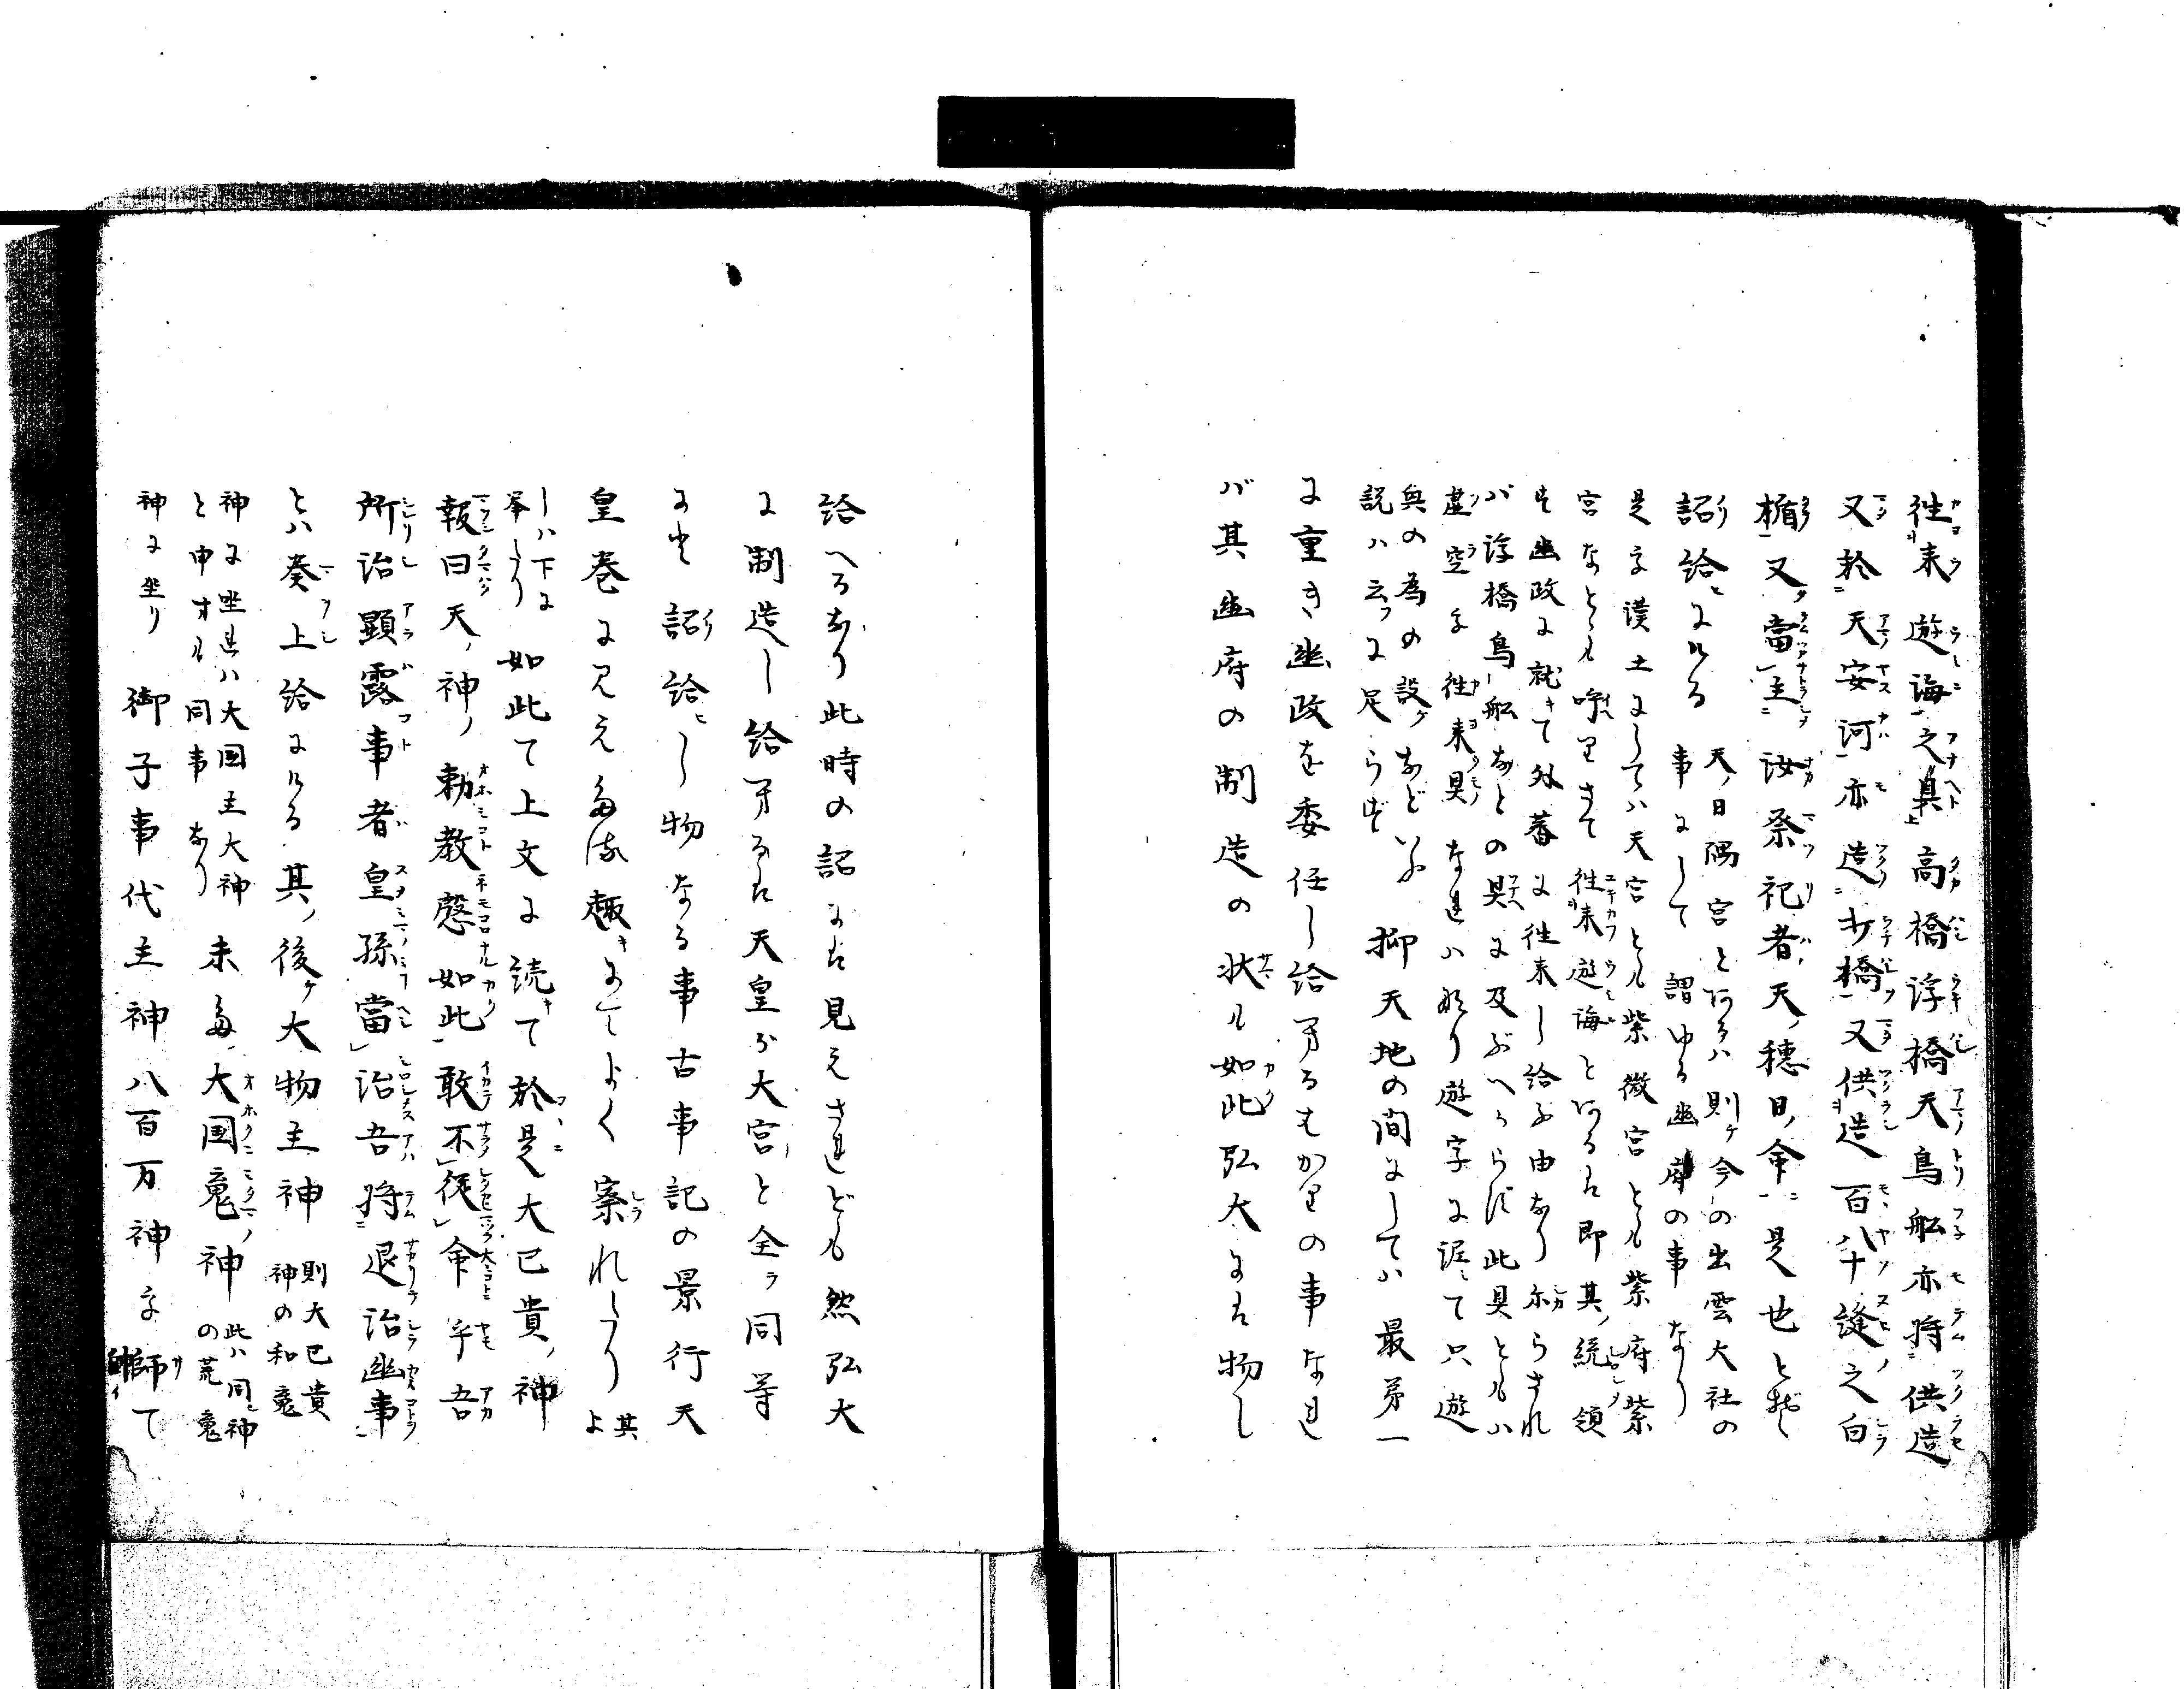 往来遊海之具高橋浮橋天鳥舩亦将供造
又於天安河亦造打橋又供造百八十縫之白
楯又當主汝祭祀者天穂日命是也とぞ
詔給ひにける 天日隅宮とあるハ則今の出雲大社の
事にして謂ゆる幽府の事なり
是を漢土にしてハ天宮とも紫微宮とも紫府紫
宮なども喩りさて往来遊海とあるは即其統領
す幽政に就きて外蕃に往来し給ふ由なり尓らされ
バ浮橋鳥舩などの具に及ぶべからず此具ともハ
虚空を往来具なれハ也遊字に泥て只遊
興の為の設などいふ
説ハ云ふに足らず 抑天地の間にしてハ最第一
に重き幽政を委任し給するばかりの事なれ
バ其幽府の制造の状も如此弘大には物し
給へるなり此時の詔には見えされども然弘大
に制造し給するは天皇が大宮と全同等
にと詔給ひし物なる事古事記の景行天
皇巻に見えたる趣きにてよく案れしり 其よ
しハ下に
挙しり 如此て上文に読きて於是大己貴神
報曰天神ノ勅教慇如此敢不従命乎吾
所治顕露事者皇孫當治吾将退治幽事
とハ奏上給にける其後ケ大物主神 則大己貴
神の和魂
神に坐せハ大国主大神
と申すも同事なり 未た大国魂神 此ハ同神
の荒魂
神に坐り 御子事代主神八百万神を師て